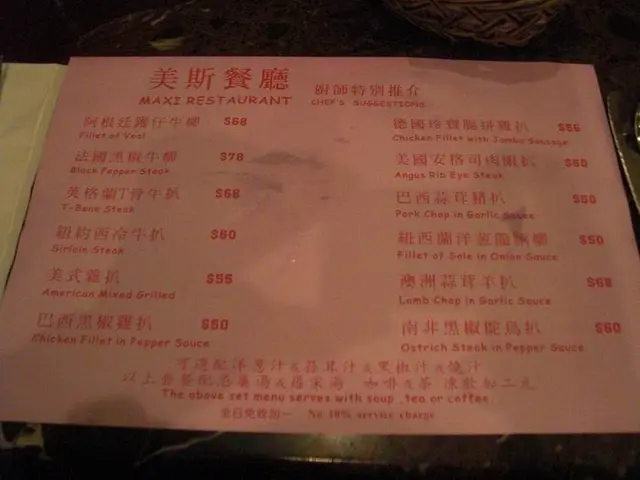 美斯餐廳 廚師特別推介
MAXI RESTAURANT CHEF'S SUGGESTIONS
阿根廷牛仔牛柳 $68
Fillet of Veal
法國黑椒牛柳 $78
Black Pepper Steak
英格蘭T骨牛扒 $68
T-Bone Steak
紐約西冷牛扒 $60
Sirloin Steak
美式雞扒 $55
American Mixed Grilled
巴西黑椒雞扒 $50
Chicken Fillet in Pepper Sauce
德國珍寶腸拼雞扒 $56
Chicken Fillet with Jumbo Sausage
美國安格司肉眼扒 $60
Angus Rib Eye Steak
巴西蒜茸豬扒 $50
Pork Chop in Garlic Sauce
紐西蘭洋蔥龍脷柳 $50
Fillet of Sole in Onion Sauce
澳洲蒜茸羊扒 $68
Lamb Chop in Garlic Sauce
南非黑椒鴕鳥扒 $60
Ostrich Steak in Pepper Sauce
可選配洋蔥汁&蒜茸汁&黑椒汁&燒汁
以上套餐配忌廉湯&羅宋湯 咖啡&茶 凍飲加二元
The above set menu serves with soup, tea or coffee.
全日免收加一 No 10% service charge